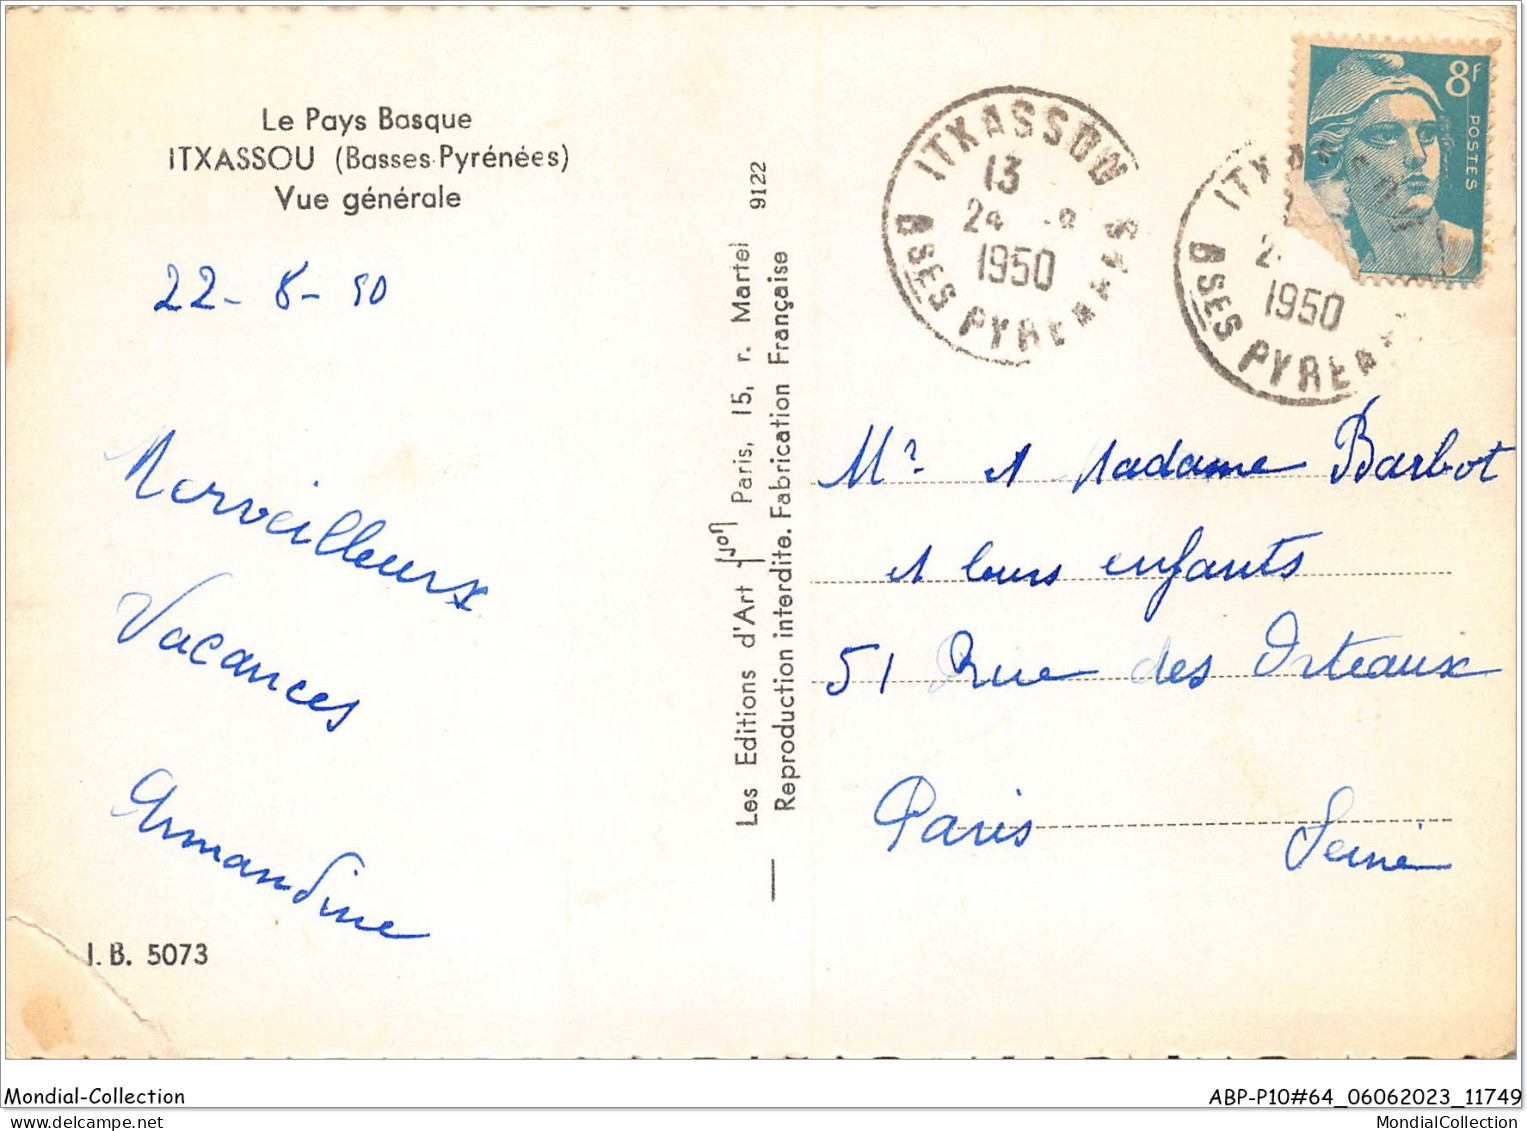 Le Pays Basque
ITXASSOU (Basses-Pyrénées)
Vue générale
22-8-50
Merveilleux
Vacances
Armandine
I.B. 5073
9122
Les Editions d'Art Yvon Paris, 15, r. Martel
Reproduction interdite. Fabrication Française
8F
POSTES
ITXASSOU
13
24
1950
BSES PYRENEES
1950
BSES PYREN
Mr et Madame Barbot
et leurs enfants
51 Rue des Orteaux
Paris
Seine
Mondial-Collection
ABP-P10#64_06062023_11749
MondialCollection
MondialCollection